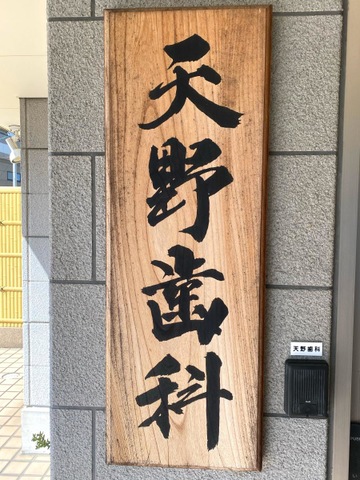 天野歯科
天野歯科